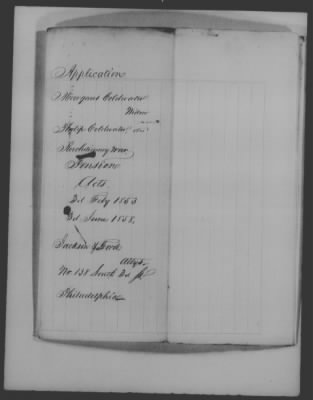 Application
Margaret Coldwater
Widow
Philip Coldwater
Revolutionary War
Pension
Acts
3d Feby 1853
3d June 1858,
Jackson & 
Attys.
No 138 South 3d St
Philadelphia